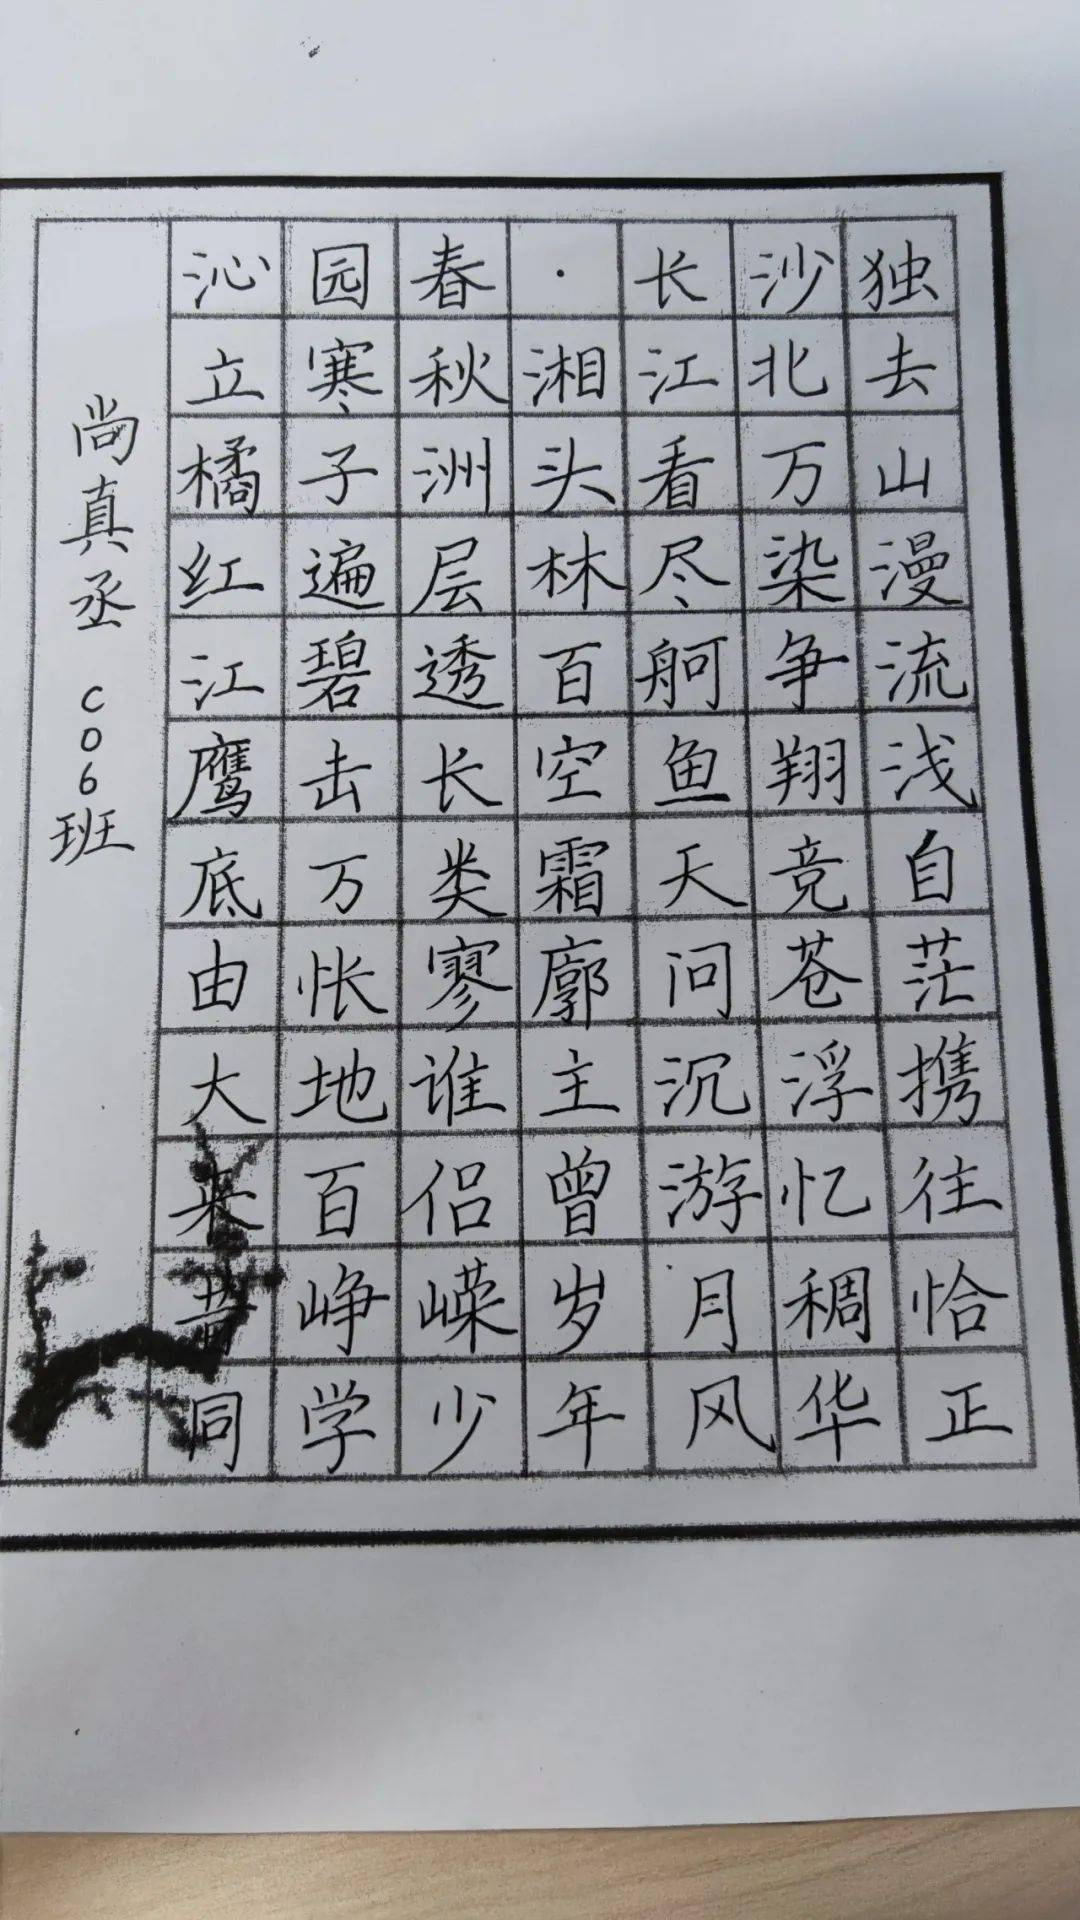 沁园春·长沙独
立寒秋湘江北去
橘子洲头看万山
红遍层林尽染漫
江碧透百舸争流
鹰击长空鱼翔浅
底万类霜天竞自
由怅寥廓问苍茫
大地谁主沉浮携
来百侣曾游忆往
昔峥嵘岁月稠恰
同学少年风华正
尚真丞 C06班